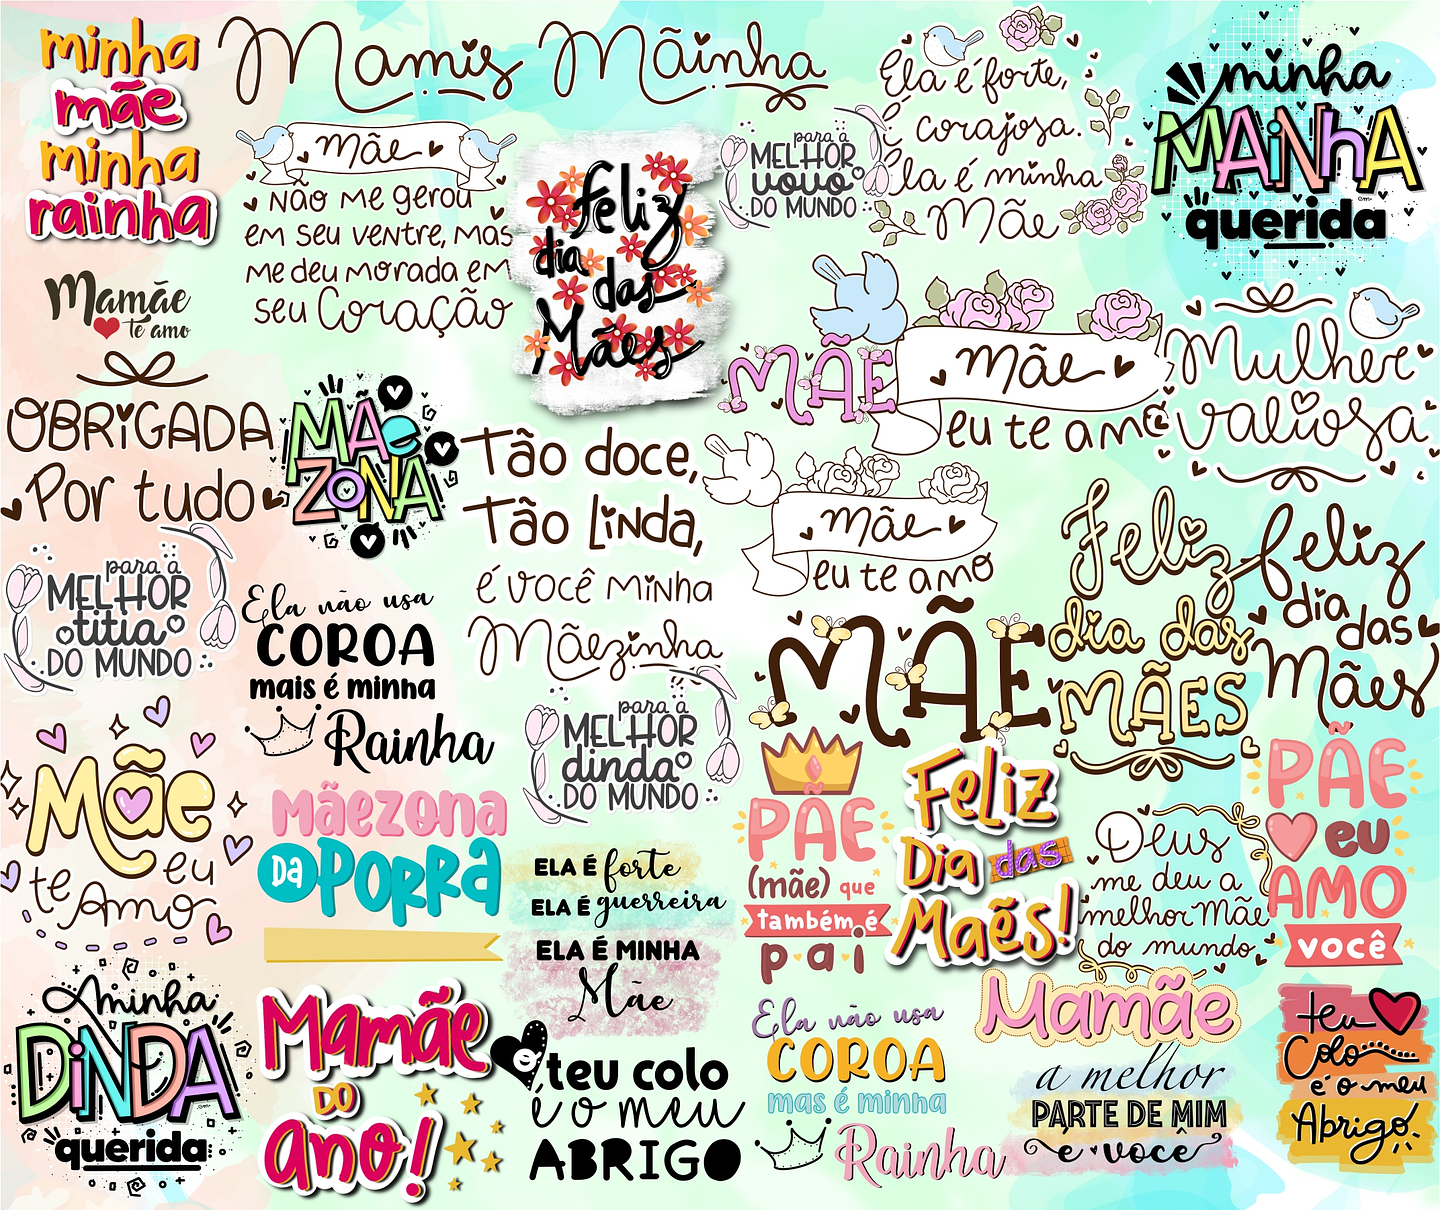 minha
mãe
minha
rainha
Mamis
Mãinha
Ela é forte,
corajosa.
Ela é minha
Mãe
minha
MAiNhA
querida
Mãe
NÃO ME gerou
EM SEU VENTRE, MAS
ME deu MORADA EM
SEU Coração
feliz
dia
das
Mães
para a
MELHOR
vovó
DO MUNDO
Mamãe
te amo
OBRiGADA
Por tudo
MÃe
ZONA
Tão doce,
Tão LiNDA,
É VOCÊ MiNHA
Mãezinha
MÃE
Mãe
eu te amo
Mulher
valiosa
Mãe
eu te amo
Feliz
dia das
MÃES
feliz
dia
das
Mães
para a
MELHOR
titia
DO MUNDO
Ela não usa
COROA
mais é minha
Rainha
para a
MELHOR
dinda
DO MUNDO
MÃE
Mãe
eu
te Amo
mãezona
Da PORRA
ELA É forte
ELA É guerreira
ELA É MINHA
Mãe
PÃE
(mãe) que
também é
pai
Feliz
Dia das
Maẽs!
Deus
me deu a
melhor Mãe
do mundo
PÃE
eu
AMO
você
A minha
DiNDA
querida
Mamãe
DO
ano!
e teu colo
é o meu
ABRIGO
Ela não usa
COROA
mas é minha
Rainha
Mamãe
a melhor
PARTE DE MIM
é você
teu
Colo
é o meu
Abrigo